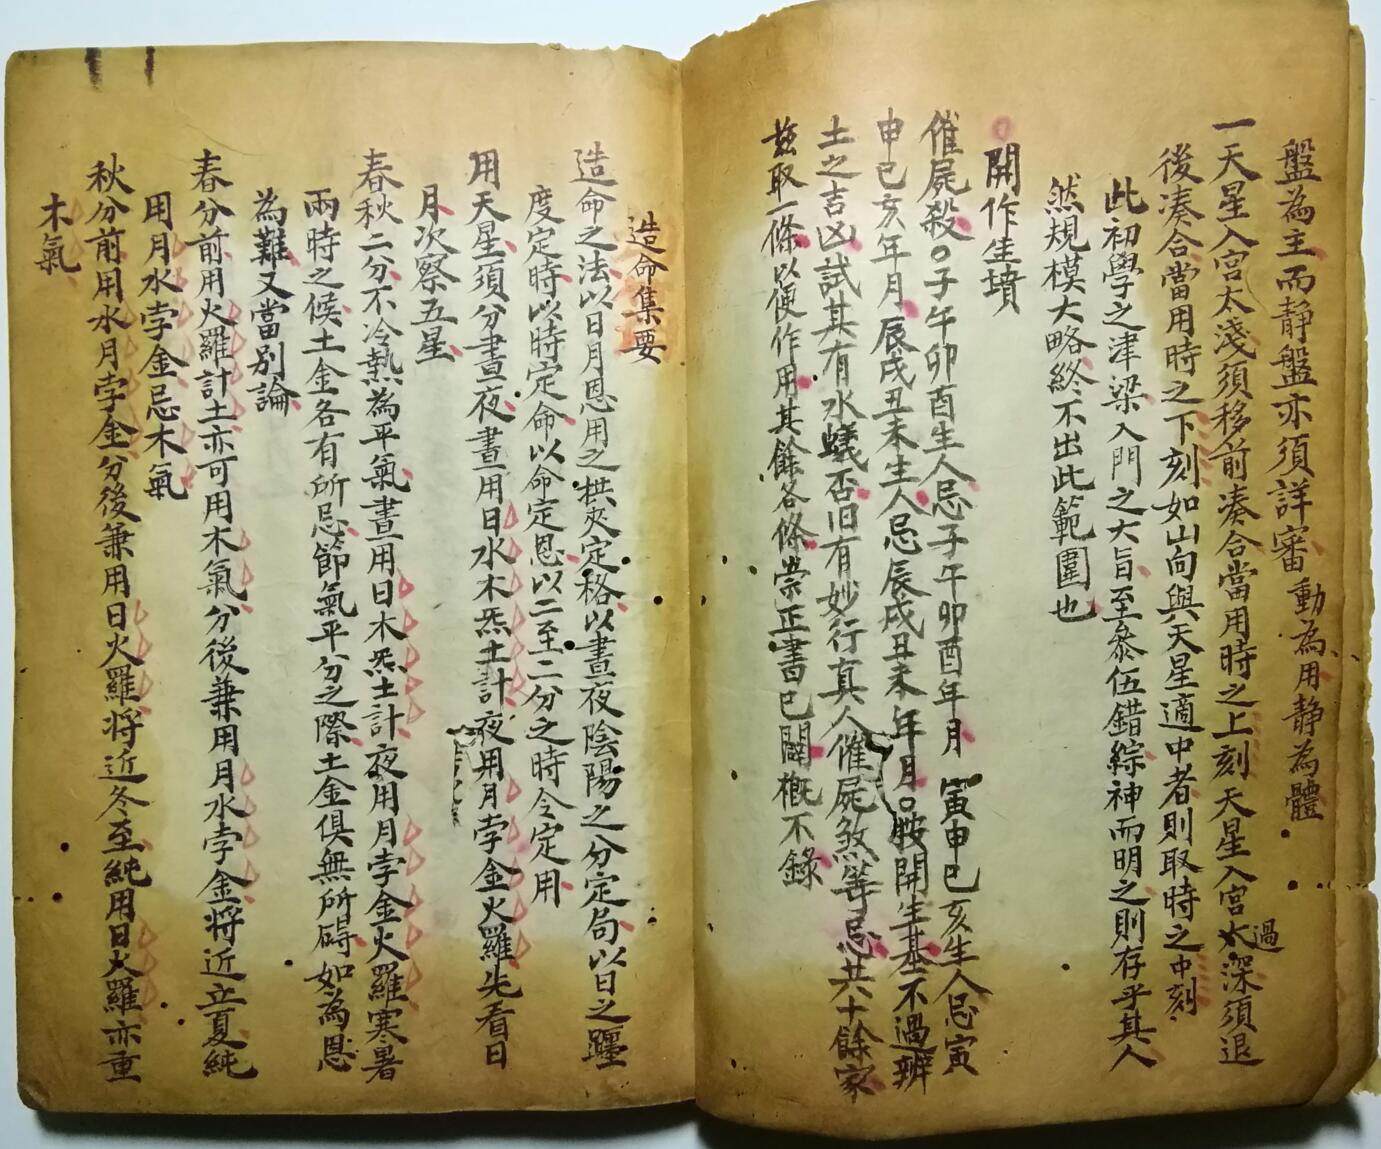 盤為主而静盤亦須詳審動為用静為體
一天星入宫太淺須移前凑合當用時之上刻天星入宫過深須退
後凑合當用時之下刻如山向與天星適中者則取時之中刻
此初學之津梁入門之大旨至叅伍錯綜神而明之則存乎其人
然規模大略終不出此範圍也
開作生墳
催屍殺〇子午卯酉生人忌子午卯酉年月寅申巳亥生人忌寅
申巳亥年月辰戌丑未生人忌辰戌丑未年月〇開生基不過辨
土之吉凶試其有水蟻否旧有妙行真人催屍煞等忌共十餘家
兹取一條以便作用其餘各條崇正書已闢概不錄
造命集要
造命之法以日月恩用之拱夾定格以晝夜陰陽之分定局以日之躔
度定時以時定命以命定恩以二至二分之時令定用
用天星須分晝夜晝用日水木炁土計夜用月孛金火羅先看日
月次察五星
春秋二分不冷熱為平氣晝用日木炁土計夜用月孛金火羅寒暑
兩時之候土金各有所忌節氣平分之際土金俱無所碍如為恩
為難又當别論
春分前用火羅計土亦可用木氣分後兼用月水孛金將近立夏純
用月水孛金忌木氣
秋分前用水月孛金分後兼用日火羅将近冬至純用日火羅亦重
木氣